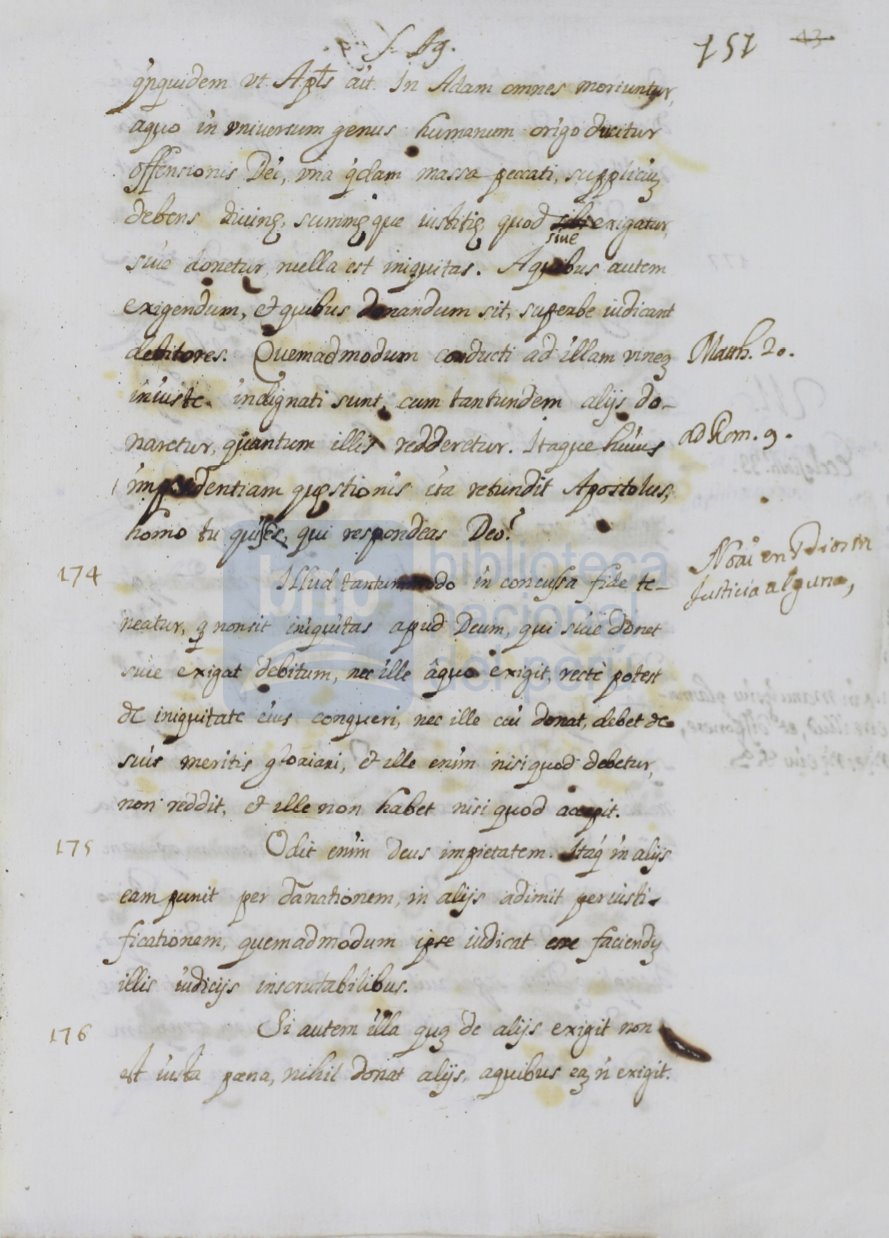 S. Ag.
151 43
qnquidem vt Apls ait. In Adam omnes moriuntur,
aquo in vniversum genus humanum origo ducitur
offensionis Dei, vna qdam massa peccati, suppliciū
debens divinę, summęque iustitię quod exigatur,
siue
siue donetur, nulla est iniquitas. Aquibus autem
exigendum, et quibus donandum sit, superbe iudicant
debitores. Quemadmodum conducti ad illam vineę
Matth. 20.
iniuste indignati sunt, cum tantundem alijs do-
naretur, quantum illis redderetur. Itaque huius
ad Rom. 9.
impudentiam quęstionis ita retundit Apostolus,
homo tu quis es, qui respondeas Deo?
No ai en Dios in
Justicia alguna,
174 Illud tantummodo in concussa fide te-
neatur, q nonsit iniquitas apud Deum, qui siue donet
siue exigat debitum, nec ille âquo exigit, rectè potest
de iniquitate eius conqueri, nec ille cui donat, debet de
suis meritis gloriari, et ille enim nisi quod debetur,
non reddit, et ille non habet nisi quod accepit.
175 Odit enim Deus impietatem. Itaq̇ in alijs
eam punit per dānationem, in alijs adimit per iusti-
ficationem, quemadmodum ipse iudicat ere faciendū
illis iudicijs inscrutabilibus.
176 Si autem illa quę de alijs exigit non
est iusta pæna, nihil donat alijs, aquibus eā n̄ exigit.